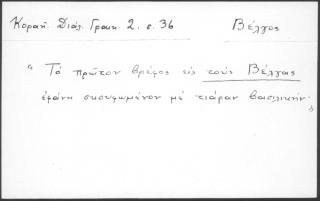 Κοραῆ. Διάλ. Γραικ. 2. σ. 36 Βέλγος
" Τὸ πρῶτον βρέφος εἰς τοὺς Βέλγας
ἐφάνη σκουφωμένον μὲ τιάραν βασιλικήν.